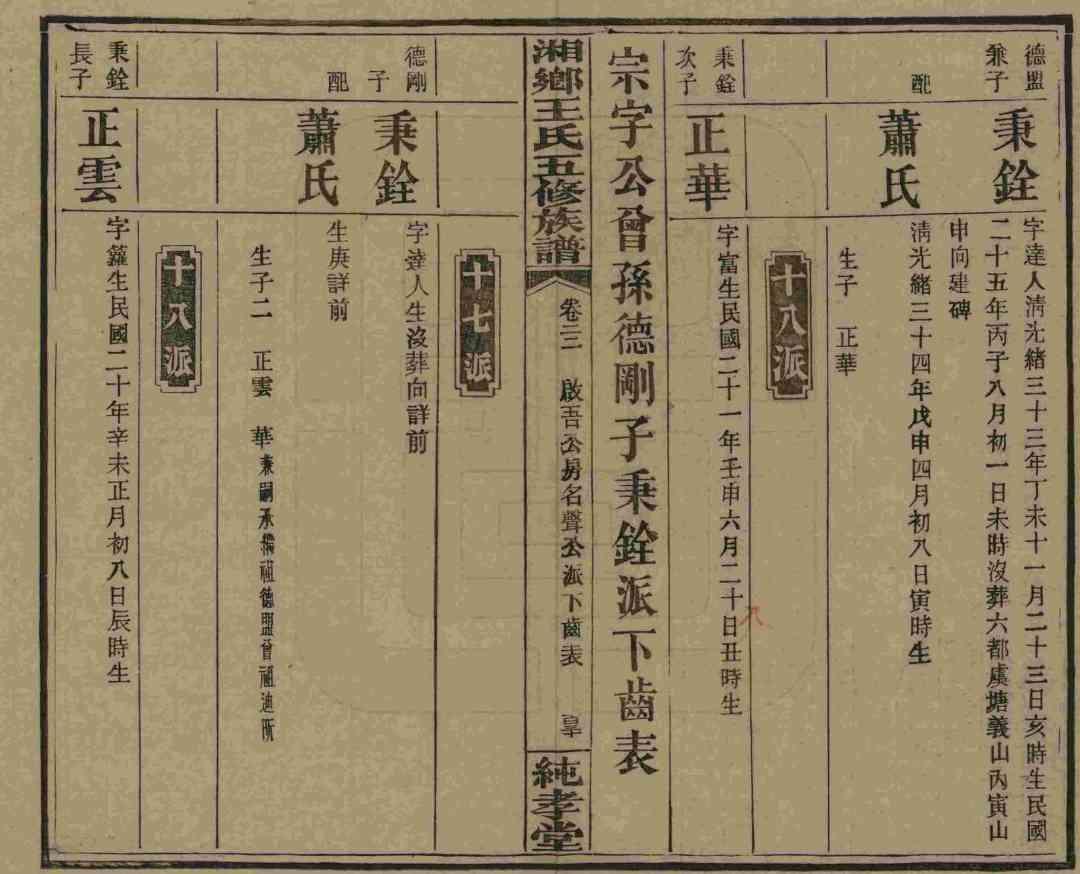 德盟
兼子
秉銓
字達人淸光緒三十三年丁未十一月二十三日亥時生民國
二十五年丙子八月初一日未時沒葬六都虞塘義山丙寅山
申向建碑
配
蕭氏
淸光緒三十四年戊申四月初八日寅時生
生子 正華
十八派
秉銓
次子
正華
字富生民國二十一年壬申六月二十日丑時生
八
宗字公曾孫德剛子秉銓派下齒表
湘鄉王氏五修族譜
卷三三 啟吾公房名聲公派下齒表
純孝堂
十七派
德剛
子
秉銓
字達人生沒葬向詳前
配
蕭氏
生庚詳前
生子二 正雲 華兼嗣承祧祖德盟曾祖迪所
十八派
秉銓
長子
正雲
字鑵生民國二十年辛未正月初八日辰時生